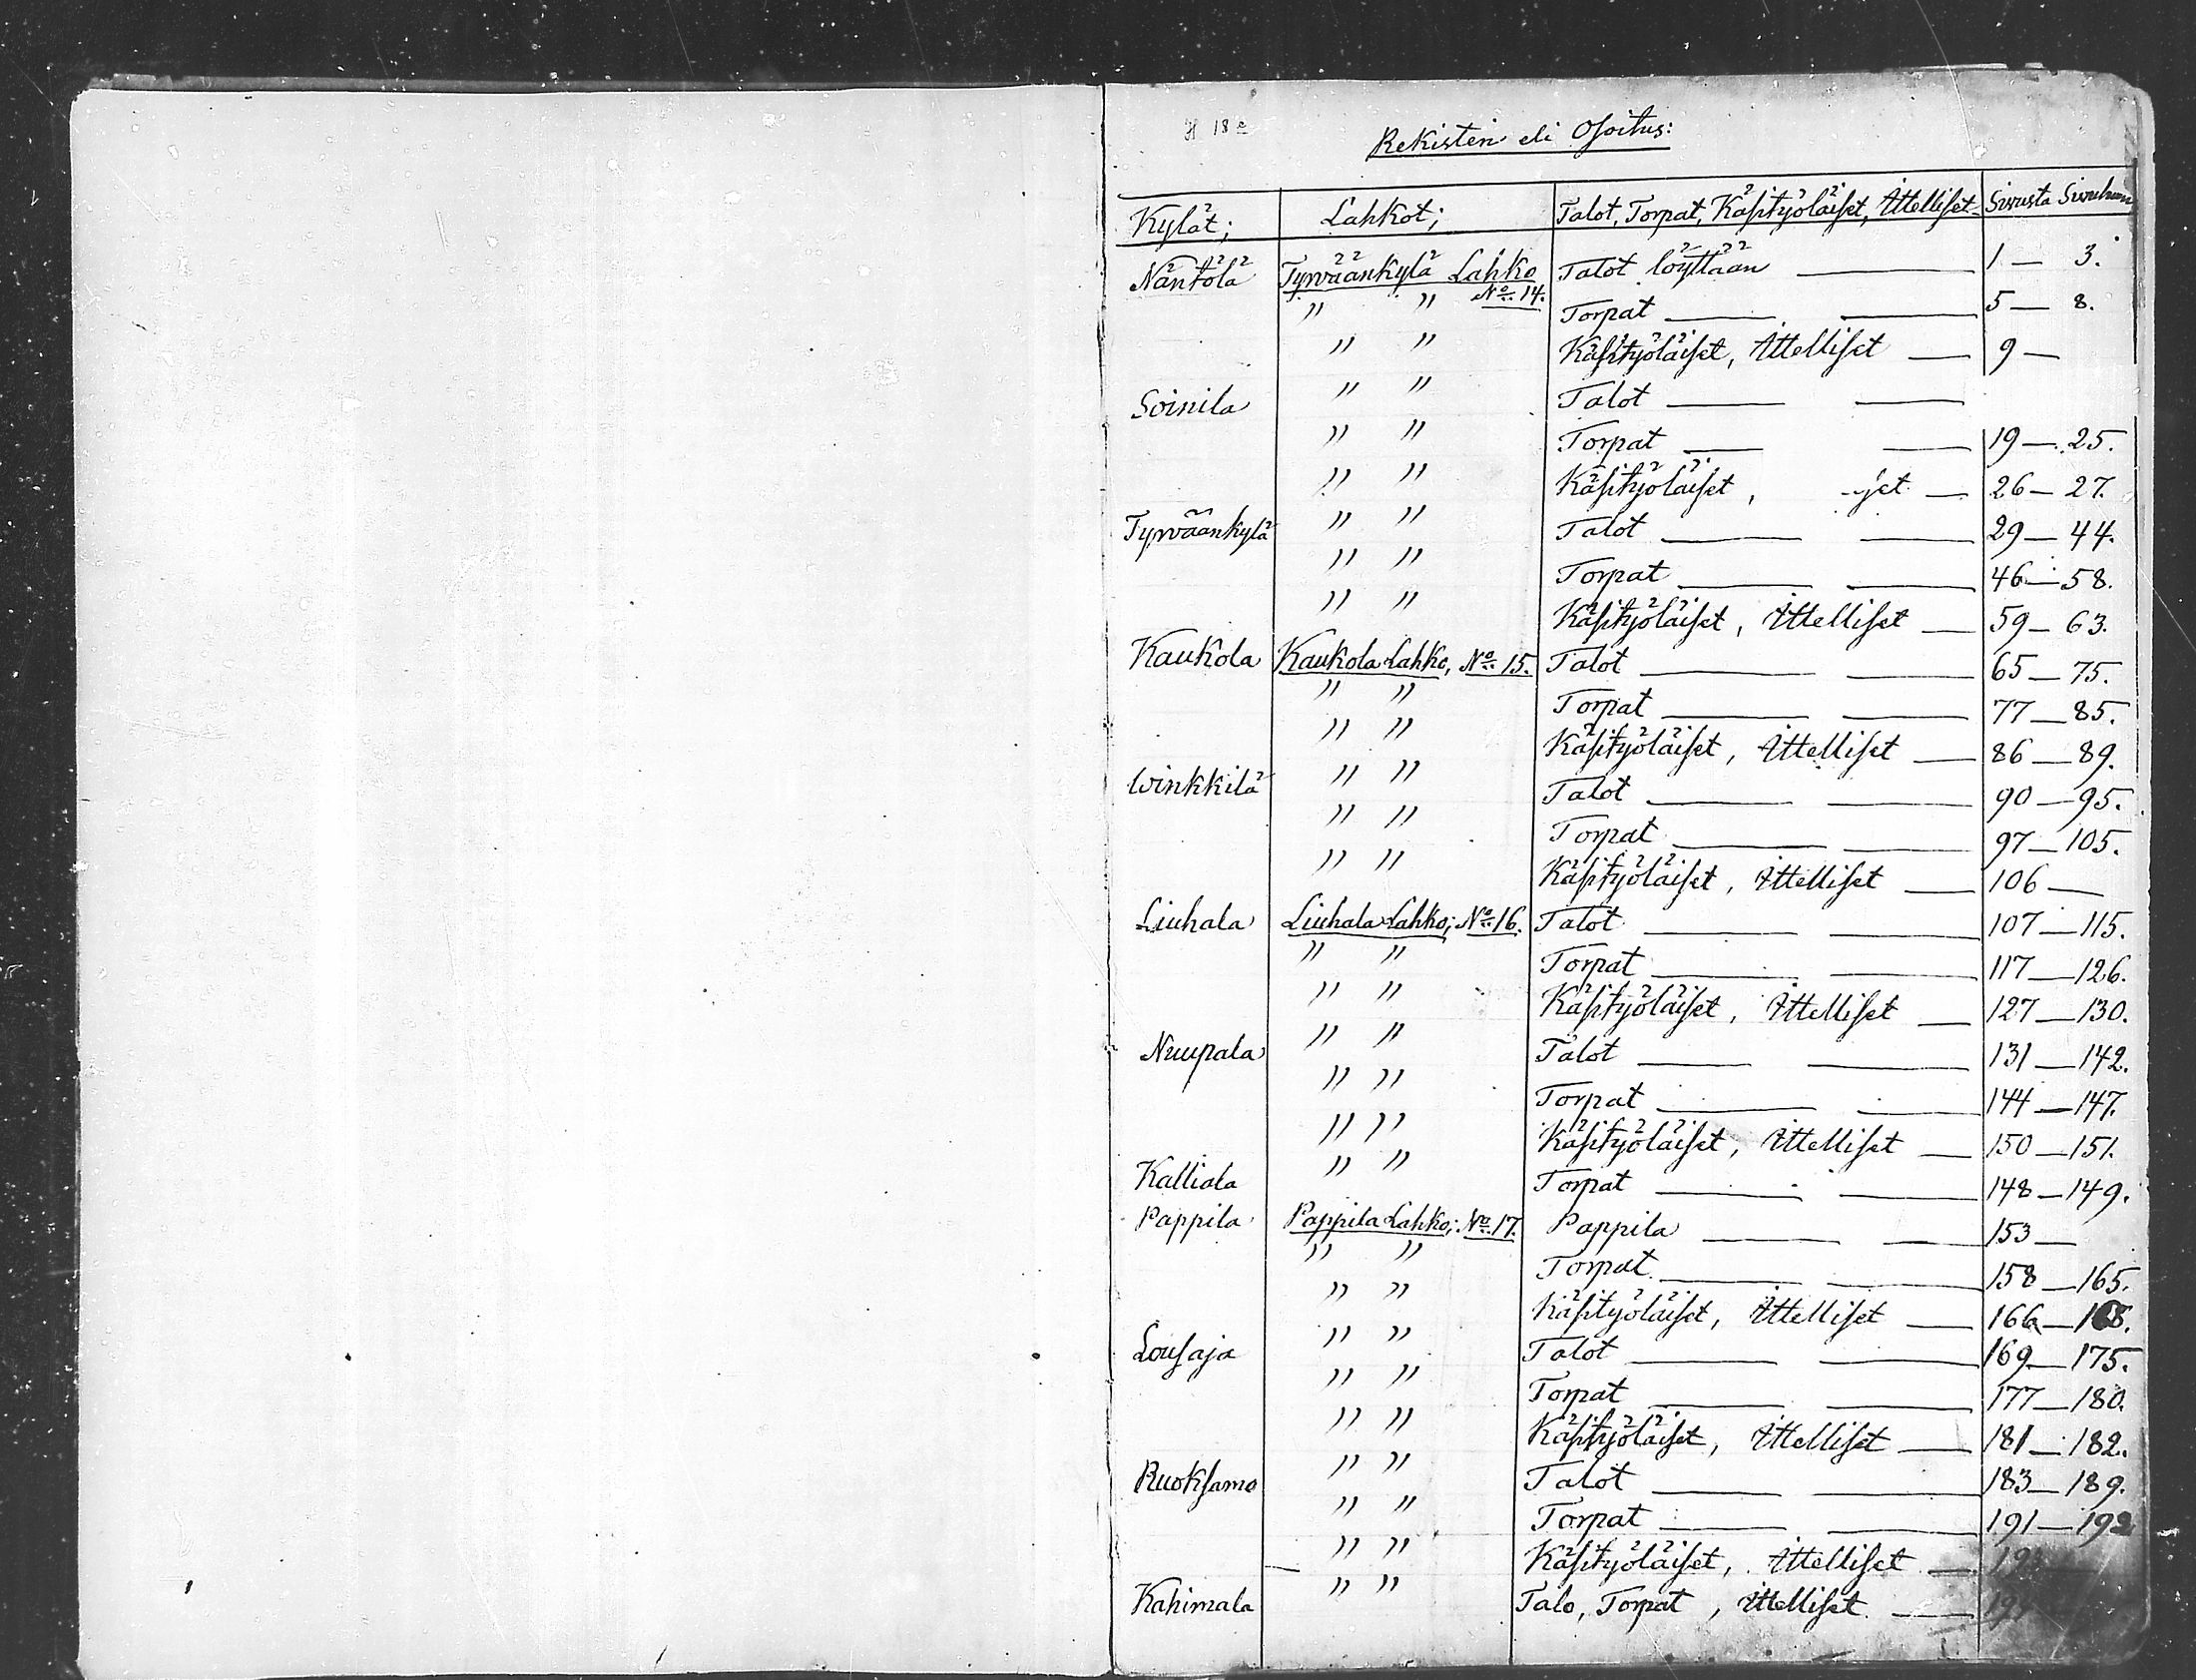 Rekisteri eli Osoitus:
Kylät; Lahkot; Talot, Torpat, Käsityöläiset, Ittelliset Sivusta Sivuhun
Näntölä Tyrväänkylä Lahko Talot löyttään — 1 — 3.
" " No 14. Torpat — — 5 — 8.
" " Käsityöläiset, Ittelliset — 9 —
Soinila " " Talot — —
" " Torpat — — 19 — 25.
" " Käsityöläiset, set — 26 — 27.
Tyrväänkylä " " Talot — — 29 — 44.
" " Torpat — — 46 — 58.
" " Käsityöläiset, Ittelliset — 59 — 63.
Kaukola Kaukola Lahko, No 15. Talot — — 65 — 75.
" " Torpat — — 77 — 85.
" " Käsityöläiset, Ittelliset — 86 — 89.
Winkkilä " " Talot — — 90 — 95.
" " Torpat — — 97 — 105.
" " Käsityöläiset, Ittelliset — 106 —
Liuhala Liuhala Lahko; No 16. Talot — — 107 — 115.
" " Torpat — — 117 — 126.
" " Käsityöläiset, Ittelliset — 127 — 130.
Nuupala " " Talot — — 131 — 142.
" " Torpat — — 144 — 147.
" " Käsityöläiset, Ittelliset — 150 — 151.
Kalliala " " Torpat — — 148 — 149.
Pappila Pappila Lahko; No 17. Pappila — — 153 —
" " Torpat — — 158 — 165.
" " Käsityöläiset, Ittelliset — 166 — 168.
Lousaja " " Talot — — 169 — 175.
" " Torpat — — 177 — 180.
" " Käsityöläiset, Ittelliset — 181 — 182.
Ruoksamo " " Talot — — 183 — 189.
" " Torpat — — 191 — 192
" " Käsityöläiset, Ittelliset —
Kahimala " " Talo, Torpat, Ittelliset —